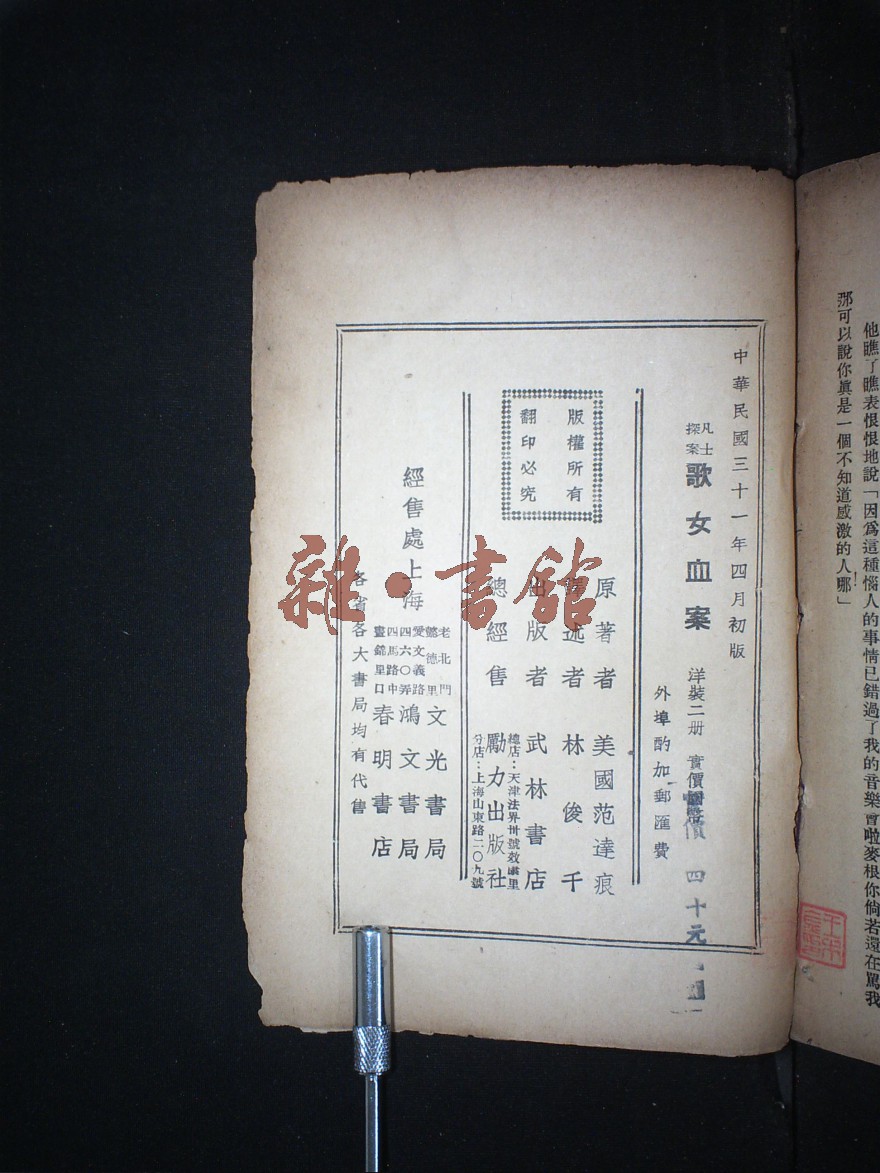 他瞧了瞧表恨恨地說「因爲這種惱人的事情已錯過了我的音樂會啦麥根你倘若還在罵我
那可以說你眞是一個不知道感激的人哪！」
中華民國三十一年四月初版
凡士探案
歌女血案
洋裝二册 實價
價 四十元
外埠酌加郵匯費
版權所有
翻印必究
原著者 美國范達痕
譯述者 林俊千
出版者 武林書店
總經售 勵力出版社
總店：天津法界卅號教堂里
分店：上海山東路二〇九號
經售處上海
老北門懿德里 文光書局
愛文義路四六〇弄 鴻文書局
四馬路中晝錦里口 春明書店
各省各大書局均有代售
雜·書館